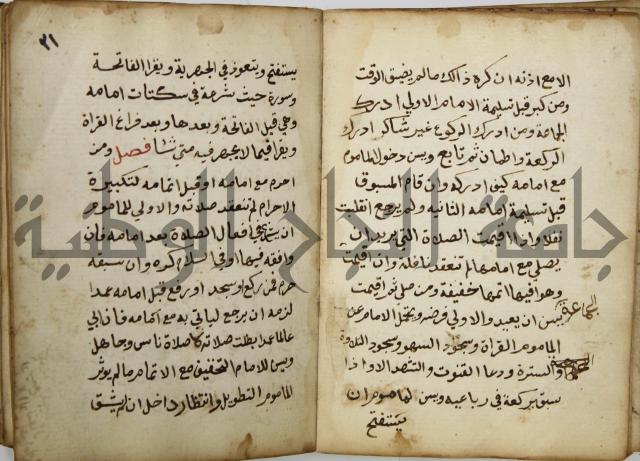 الامع اذنه ان كره ذالك ما لم يضيق الوقت
ومن كبر قبل تسليمة الامام الاولي ادرك
الجماعة ومن ادرك الركوع غير شاك ادرك
الركعة واطمان ثم تابع ويسن دخول الماموم
مع امامه كيف ادركه وان قام المسبوق
قبل تسليمة امامه الثانية ولم يرجع انقلبت
نفلا واذا اقيمت الصلاة التي يريد ان
يصلي مع امامها لم تنعقد نافلة وان اقيمت
وهو فيها اتمها خفيفة ومن صلي ثم اقيمت
الجماعة
يسن ان يعيد والاولي فرضه ويتحمل الامام عن
الماموم القراة وسجود السهو وسجود التلاوة
والسترة ودعا القنوت والتشهد الاول اذا
سبق بركعة في رباعية ويسن لماموم ان
يستفتح
٢١
يستفتح ويتعوذ في الجهرية ويقرا الفاتحة
وسورة حيث شرعت في سكتات امامه
وهي قبل الفاتحة وبعدها وبعد فراغ القراة
ويقرا فيما لا يجهر فيه متي شا فصل ومن
احرم مع امامه او قبل اتمامه لتكبيرة
الاحرام لم تنعقد صلاته والاولي للماموم
ان يشرع في افعال الصلاة بعد امامه فان
وافقه فيها او في السلام كره وان سبقه
حرم فمن ركع او سجد او رفع قبل امامه عمدا
لزمه ان يرجع لياتي به مع امامه فان ابي
عالما عمدا بطلت صلاته لا صلاة ناس وجاهل
ويسن للامام التخفيف مع الاتمام ما لم يوثر
الماموم التطويل وانتظار داخل ان لم يشق
جامعة النجاح الوطنية